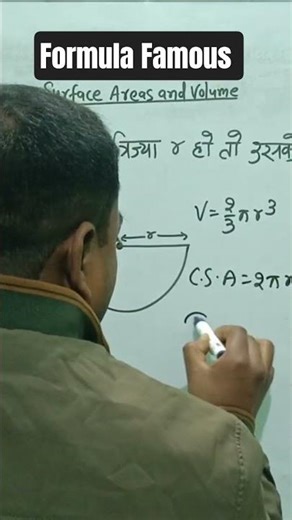 Formula Famous
Surface Areas and Volume
त्रिज्या r हो तो उसका
r
V = 2/3 πr³
C.S.A = 2πr